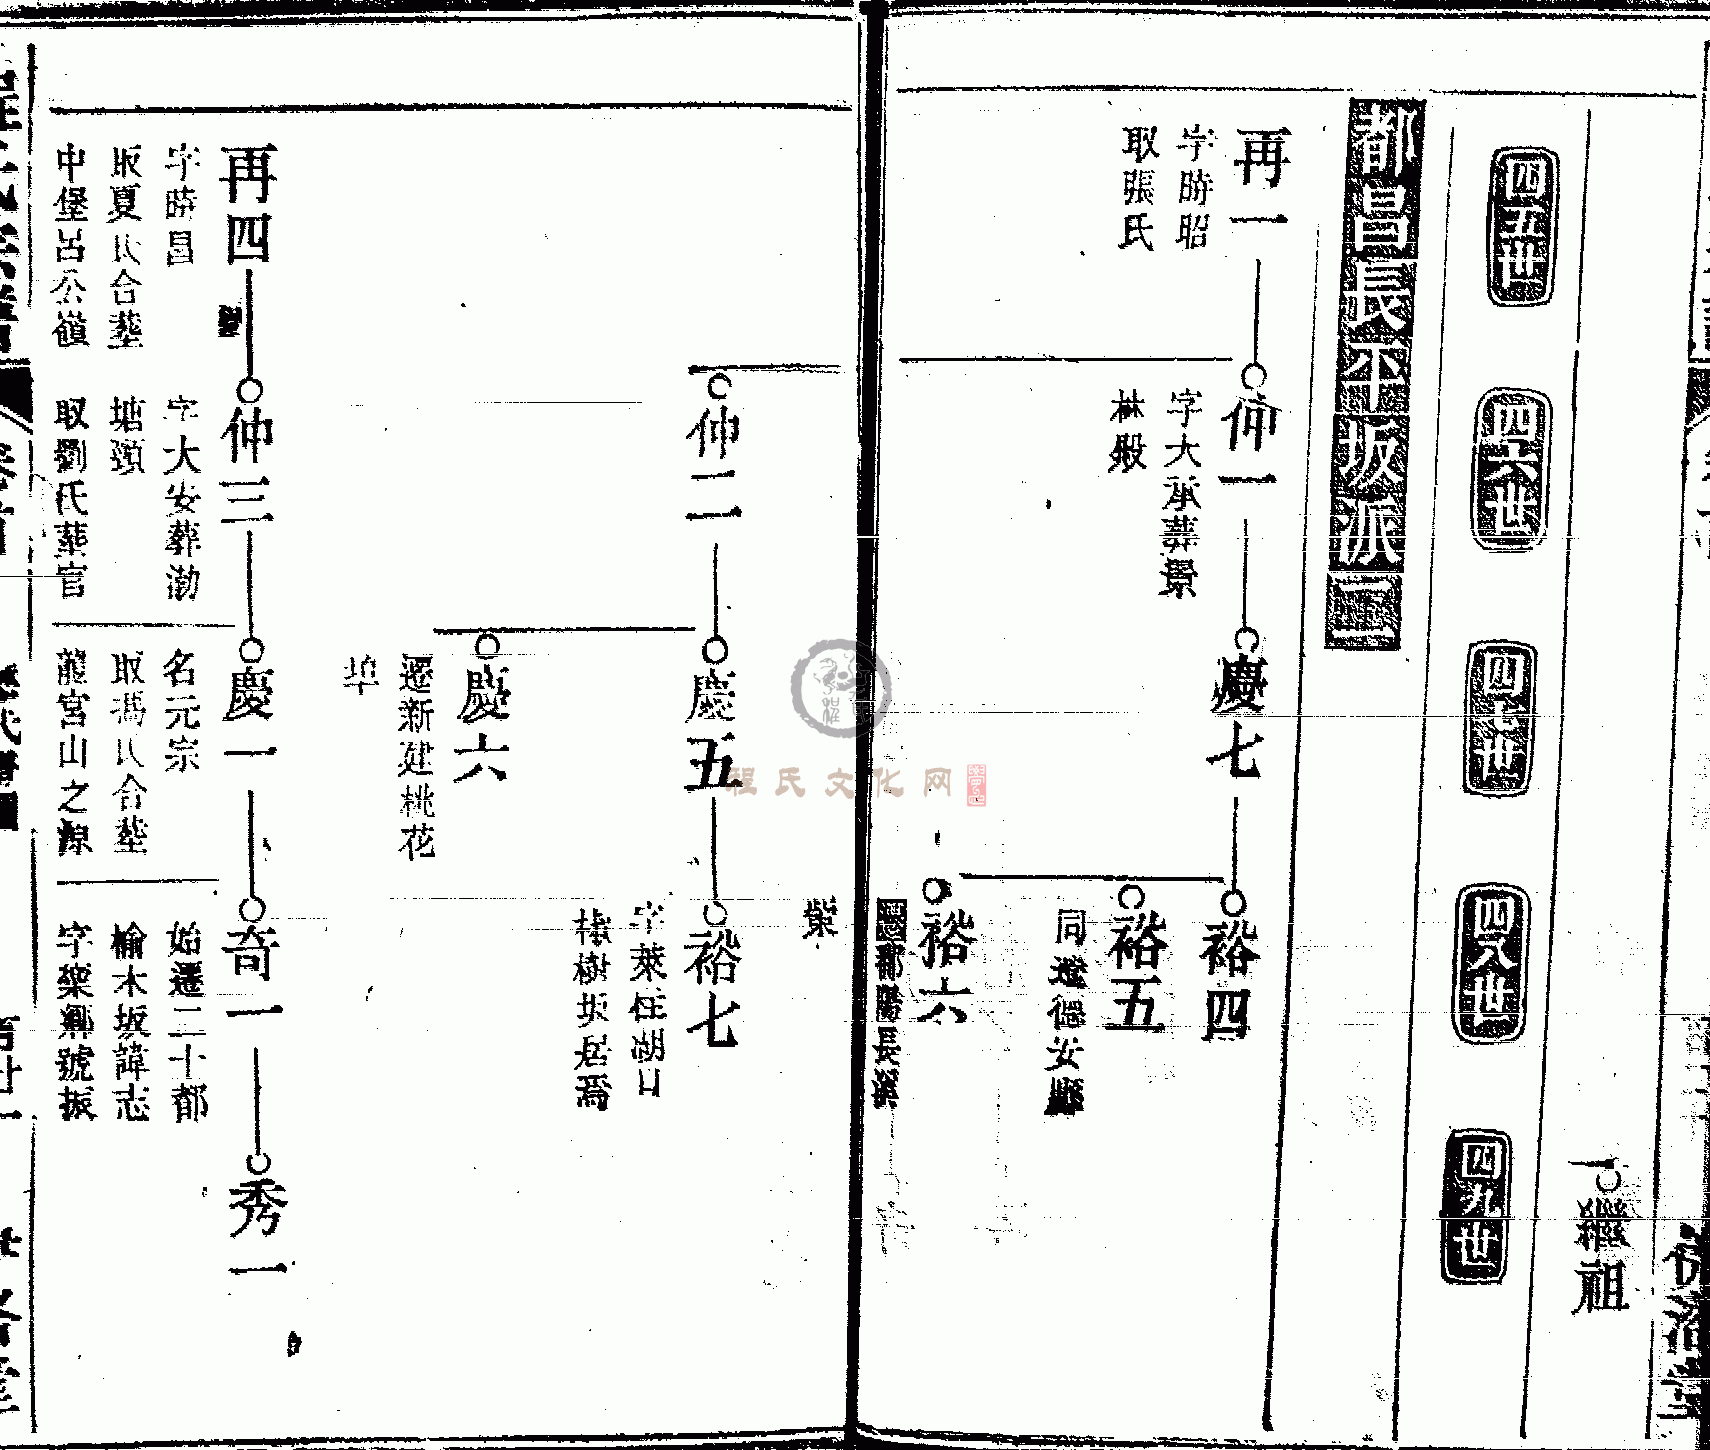 繼祖
四五世
四六世
四七世
四八世
四九世
都昌長平坂派
再一
字時昭
取張氏
仲一
字大承葬景
林殿
慶七
裕四
裕五
同遷德安縣
裕六
遷鄱陽長溪
柴
仲二
慶五
裕七
字萊任湖口
椿樹坂居焉
慶六
遷新建桃花
埠
再四
字時昌
取夏氏合塟
中堡呂公嶺
仲三
字大安葬渤
塘頭
取劉氏葬官
慶一
名元宗
取馮氏合塟
龍宮山之源
奇一
始遷二十都
榆木坂諱志
字樂鄉號振
秀一
程氏文化网